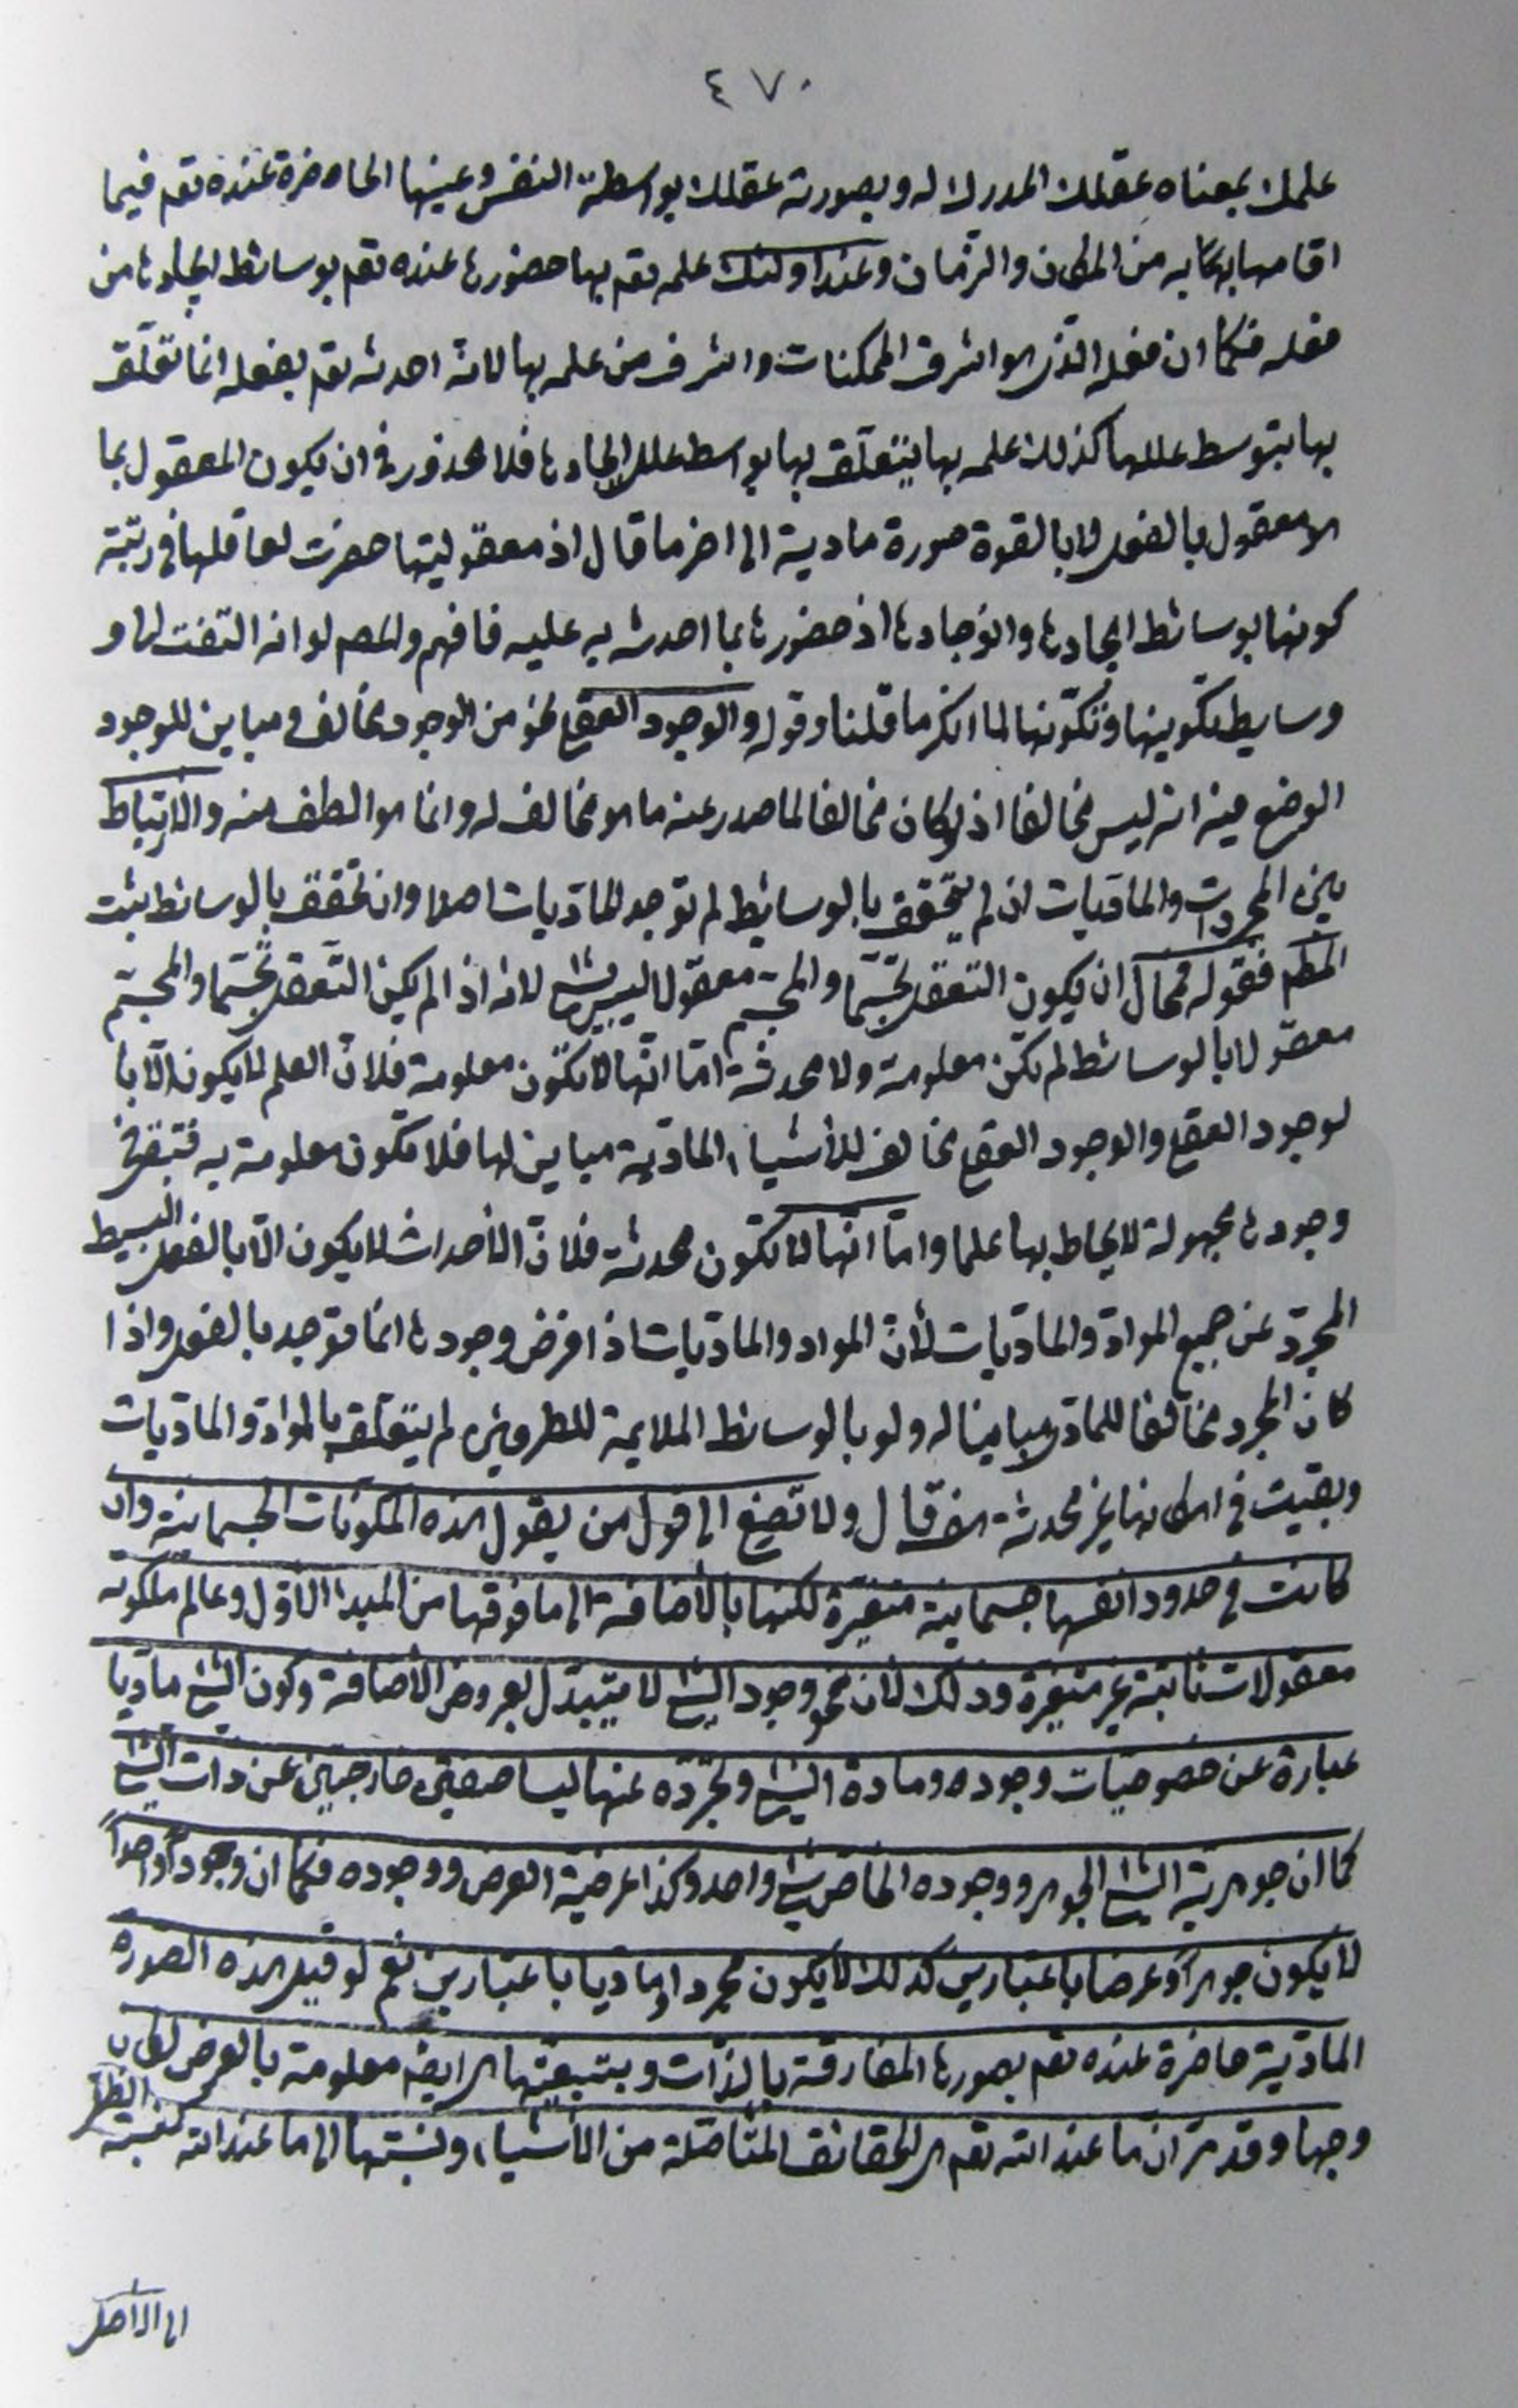 ٤٧٠
علمك بمعناه عقلك المدرك له وبصورته عقلك بواسطة النفس وعينها الحاضرة عنده تعم فيما
اقامها بها به من المكان والزمان وعند اولئك علمه تعم بها حضورها عنده تعم بوسائط ايجادها من
فعله فكما ان فعله الذى هو اشرف الممكنات واشرف من علمه بها لانه احدثه تعم بفعله انما تعلّق
بها بتوسط عللها كذلك علمه بها يتعلّق بها بواسط علل ايجادها فلا محذور فى ان يكون المعقول بما
هو معقول بالفعل او بالقوة صورة مادية الى اخر ما قال اذ معقوليتها حضرت لعاقلها فى رتبة
كونها بوسائط ايجادها وانوجادها اذ حضورها بما احدث به عليه فافهم والمصم لو انه التفت لها و
وسايط تكوينها وتكوّنها لما انكر ما قلنا وقوله والوجود العقلى نحو من الوجود مخالف ومباين للوجود
الوضعى فيه انه ليس مخالفا اذ لو كان مخالفا لما صدر عنه ما هو مخالف له وانما هو الطف منه والارتباط
بين المجردات والماديات ان لم يتحقق بالوسايط لم توجد الماديات اصلا وان تحقق بالوسائط ثبت
المطم فقوله محال ان يكون التعقل تجسّما والمجسّم معقولا ليس بشئ لانه اذا لم يكن التعقل تجسّما والمجسّم
معقولا بالوسائط لم تكن معلومة ولا محدثة امّا انّها لا تكون معلومة فلانّ العلم لا يكون الّا با
لوجود العقلى والوجود العقلى مخالف للأشياء المادية مباين لها فلا تكون معلومة به فتبقى فى
وجودها مجهولة لا يحاط بها علما وامّا انّها لا تكون محدثة فلانّ الأحداث لا يكون الّا بالفعل البسيط
المجرّد عن جميع الموادّ والماديات لأنّ المواد والماديات اذا فرض وجودها انما توجد بالفعل واذا
كان المجرد مخالفا للمادى مباينا له ولو بالوسائط الملايمة للطرفين لم يتعلّق بالموادّ والماديات
وبقيت فى امكانها غير محدثة هف قال ولا تصغ الى قول من يقول هذه المكونات الجسمانية وان
كانت فى حدود انفسها جسمانية متغيّرة لكنها بالأضافة الى ما فوقها من المبدا الاوّل وعالم ملكوته
معقولات ثابتة غير متغيرة وذلك لأن نحو وجود الشئ لا يتبدّل بعروض الأضافة وكون الشئ ماديا
عبارة عن خصوصيات وجوده ومادة الشئ وتجرّده عنها ليسا صفتين خارجيّين عن ذات الشئ
كما ان جوهرية الشئ الجوهر ووجوده الخاص شئ واحد وكذا عرضية العرض ووجوده فكما ان وجوداً واحداً
لا يكون جوهراً وعرضا باعتبارين كذلك لا يكون مجردا وماديا باعتبارين نعم لو قيل هذه الصورة
المادّية حاضرة عنده تعم بصورها المفارقة بالذّات وبتبعيّتها هى ايضا معلومة بالعرض لكان
وجها وقد مرّ ان ما عند الله تعم هى الحقائق المتأصّلة من الأشياء ونسبتها الى ما عند الله كنسبة الظل
الى الأصل